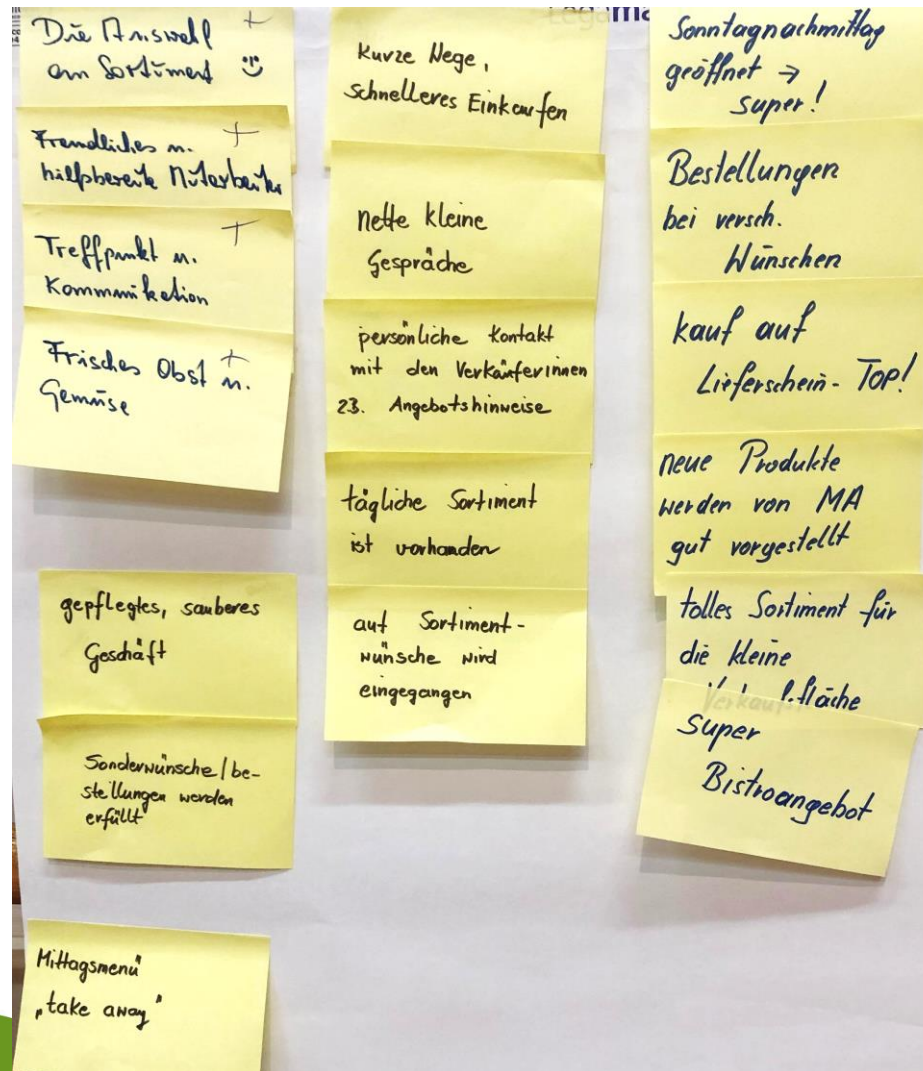 Die Auswahl +
am Sortiment
Freundliches u. +
hilfsbereite Mitarbeiter
Treffpunkt u. +
Kommunikation
Frisches Obst u. +
Gemüse
gepflegtes, sauberes
Geschäft
Sonderwünsche/be-
stellungen werden
erfüllt
Mittagsmenü
„take away"
kurze Wege,
schnelleres Einkaufen
nette kleine
Gespräche
persönliche Kontakt
mit den Verkäuferinnen
z.B. Angebotshinweise
tägliche Sortiment
ist vorhanden
auf Sortiment-
wünsche wird
eingegangen
Sonntagnachmittag
geöffnet →
super!
Bestellungen
bei versch.
Wünschen
kauf auf
Lieferschein - TOP!
neue Produkte
werden von MA
gut vorgestellt
tolles Sortiment für
die kleine
Verkaufsfläche
super
Bistroangebot